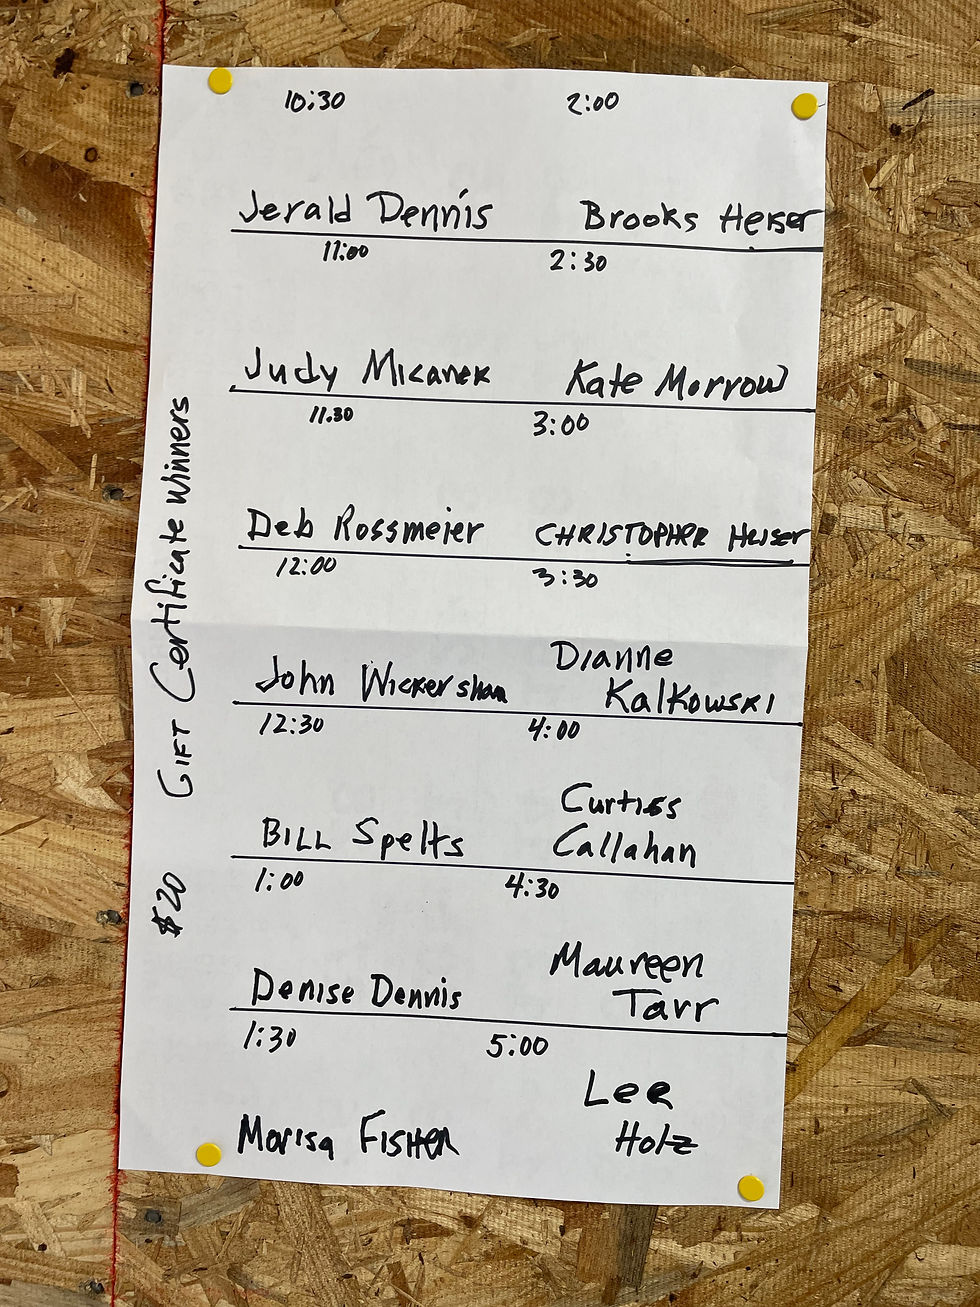 $20 GIFT Certificate Winners
10:30
Jerald Dennis
11:00
Judy Micanek
11.30
Deb Rossmeier
12:00
John Wickersham
12:30
BILL Spelts
1:00
Denise Dennis
1:30
Marisa FISHER
2:00
Brooks Heiser
2:30
Kate Morrow
3:00
CHRISTOPHER Heiser
3:30
Dianne
Kalkowski
4:00
Curtiss
Callahan
4:30
Maureen
Tarr
5:00
Lee
Holz